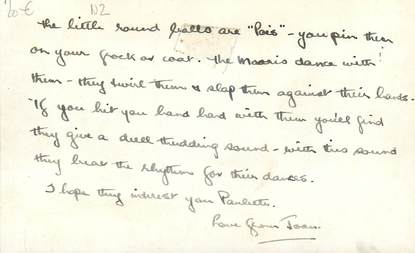 20 € NZ
the little round balls are "Pois" - you pin them
on your frock or coat. the Maoris dance with
them - they swirl them & slap them against their hands.
"If you hit your hand hard with them you'll find
they give a dull thudding sound - with this sound
they beat the rhythm for their dances.
I hope they interest you Paulette.
Love from Joan.